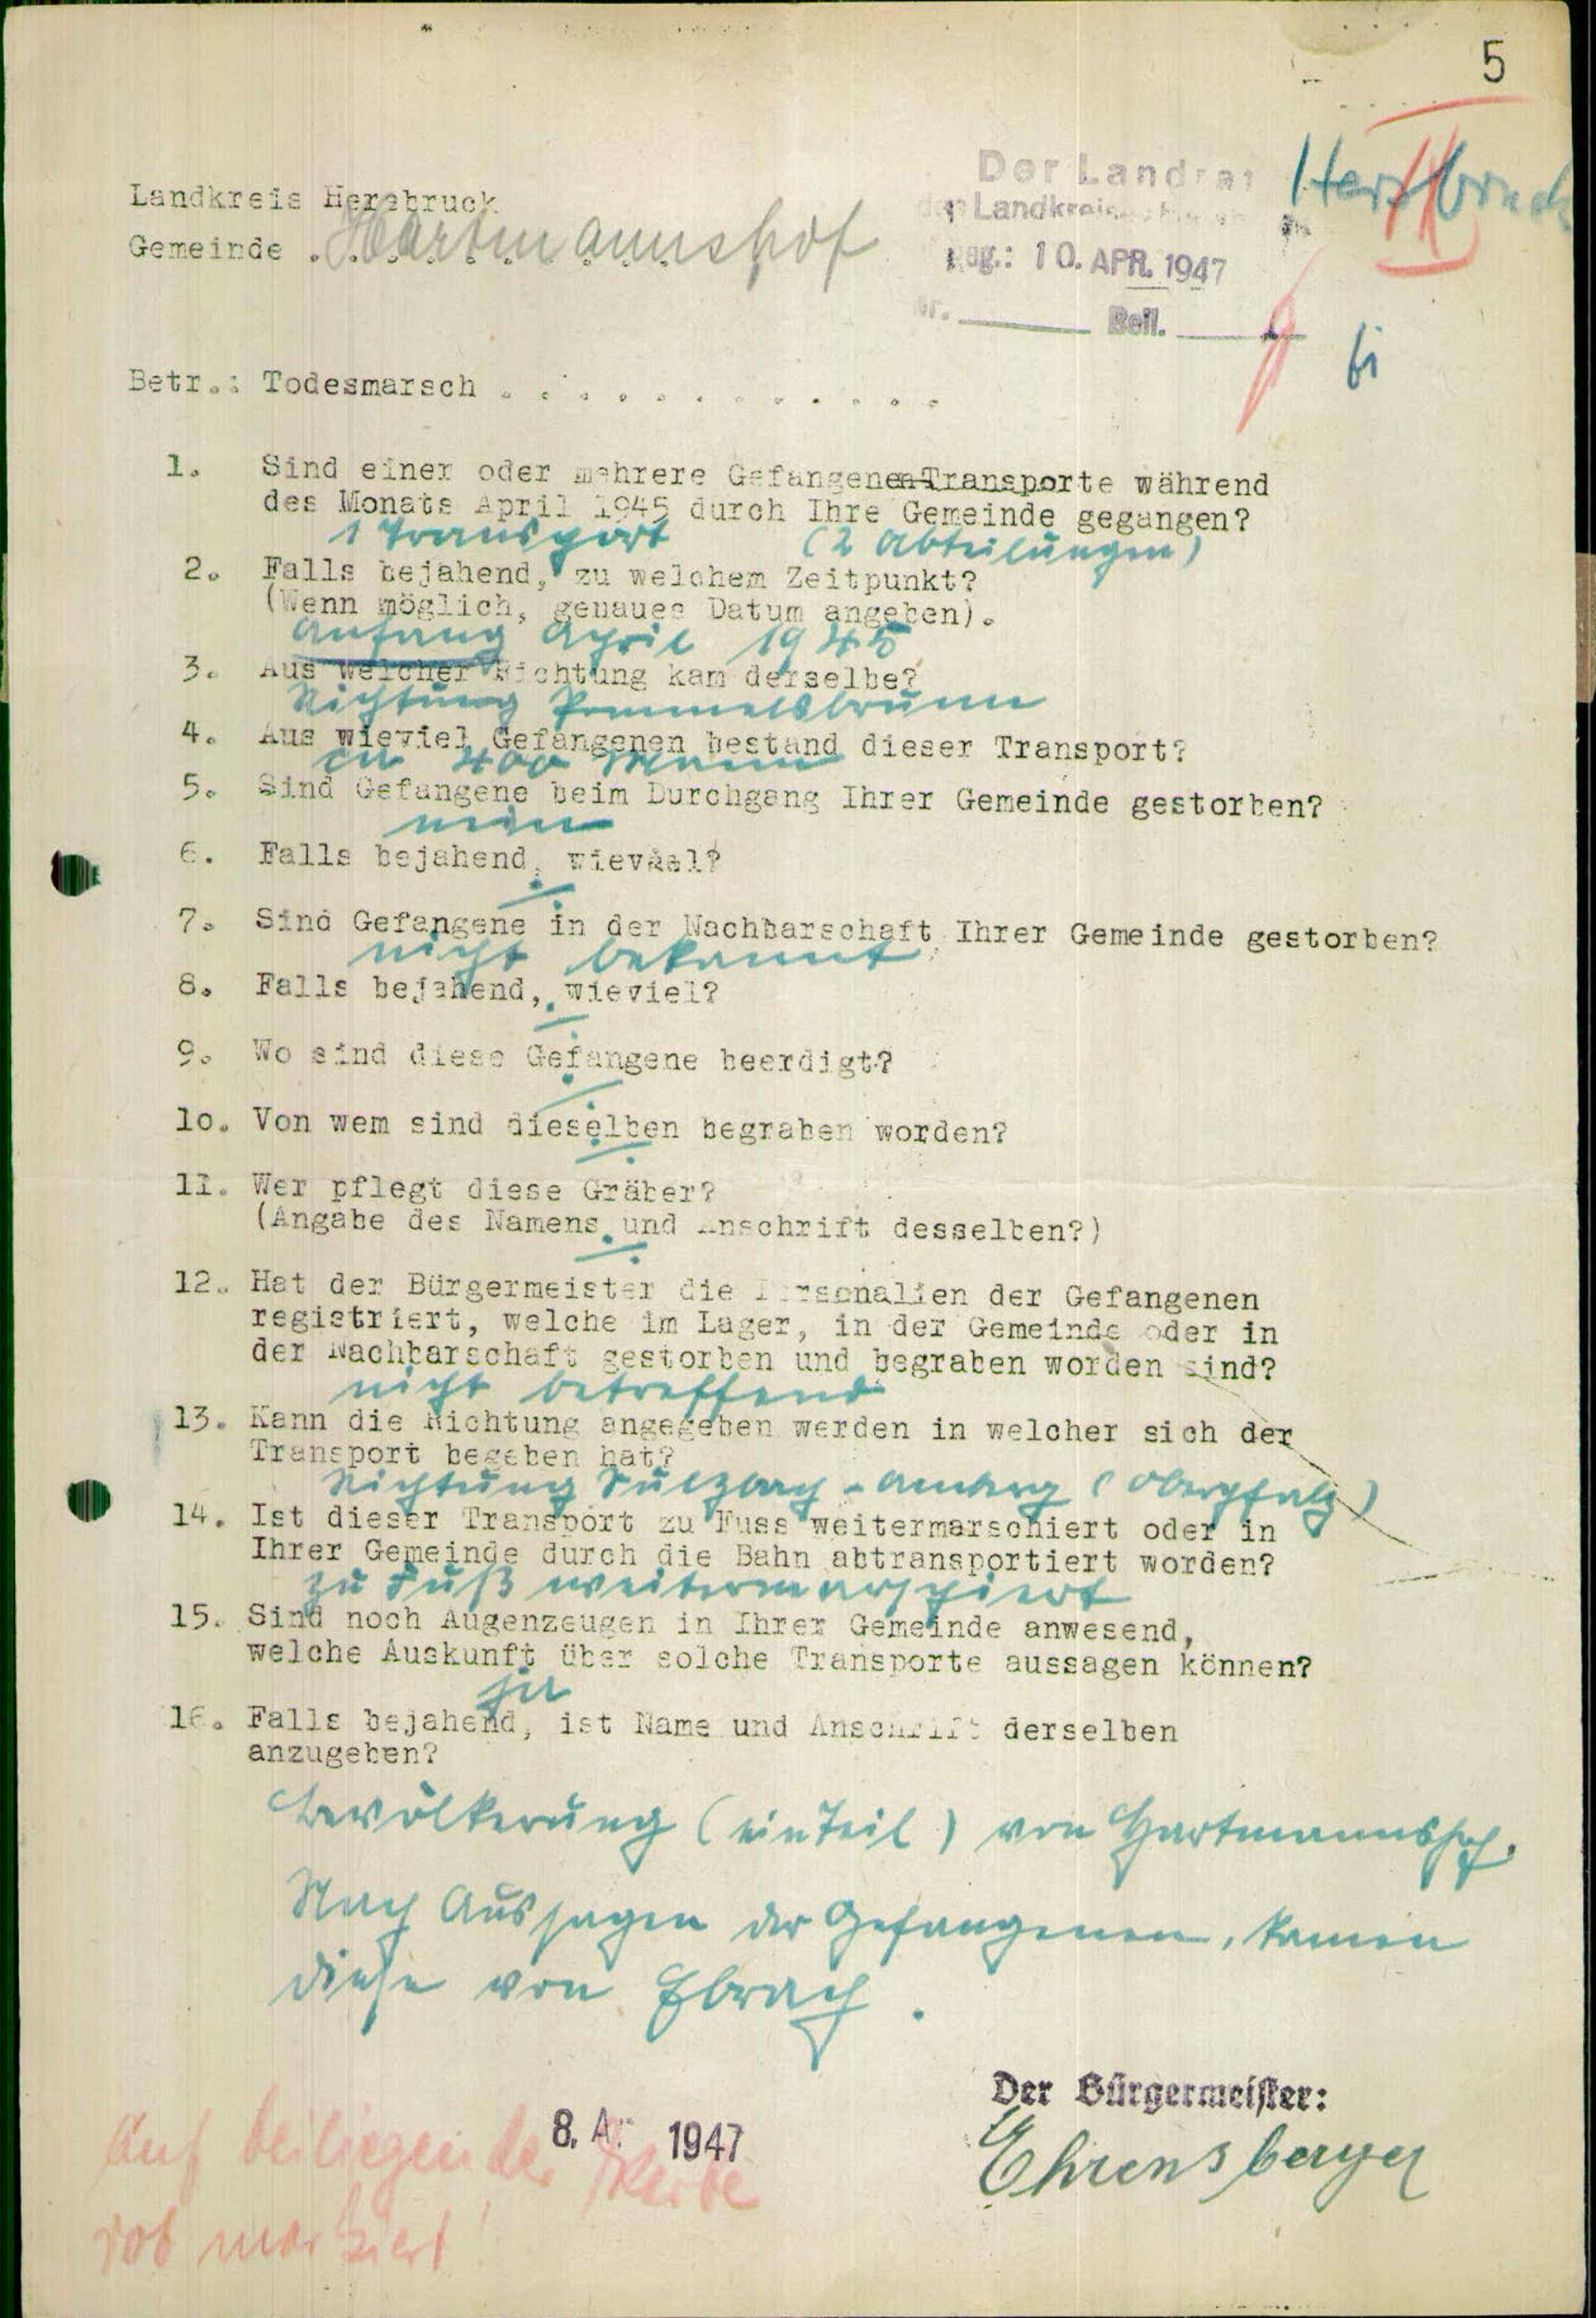 5
Der Landrat
Landkreis Hersbruck
Gemeinde Hartmannshof
Hersbruck
II
10. APR. 1947
Beil.
Betr.: Todesmarsch . . . . . . . . . . . .
1. Sind einer oder mehrere Gefangenen-Transporte während
des Monats April 1945 durch Ihre Gemeinde gegangen?
1 Transport (2 Abteilungen)
2. Falls bejahend, zu welchem Zeitpunkt?
(Wenn möglich, genaues Datum angeben).
Anfang April 1945
3. Aus welcher Richtung kam derselbe?
Richtung Pommelsbrunn
4. Aus wieviel Gefangenen bestand dieser Transport?
ca 400 Mann
5. Sind Gefangene beim Durchgang Ihrer Gemeinde gestorben?
nein
6. Falls bejahend, wieviel?
./.
7. Sind Gefangene in der Nachbarschaft Ihrer Gemeinde gestorben?
nicht bekannt
8. Falls bejahend, wieviel?
./.
9. Wo sind diese Gefangene beerdigt?
./.
10. Von wem sind dieselben begraben worden?
./.
11. Wer pflegt diese Gräber?
(Angabe des Namens und Anschrift desselben?)
./.
12. Hat der Bürgermeister die Personalien der Gefangenen
registriert, welche im Lager, in der Gemeinde oder in
der Nachbarschaft gestorben und begraben worden sind?
nicht betreffend
13. Kann die Richtung angegeben werden in welcher sich der
Transport begeben hat?
Richtung Sulzbach - Amberg (Oberpfalz)
14. Ist dieser Transport zu Fuss weitermarschiert oder in
Ihrer Gemeinde durch die Bahn abtransportiert worden?
zu Fuß weitermarschiert
15. Sind noch Augenzeugen in Ihrer Gemeinde anwesend,
welche Auskunft über solche Transporte aussagen können?
ja
16. Falls bejahend, ist Name und Anschrift derselben
anzugeben?
Bevölkerung (ein Teil) von Hartmannshof.
Nach Aussagen der Gefangenen, kamen
diese von Ebrach.
Der Bürgermeister:
8. A 1947
Ehrensberger
Auf beiliegender Karte
rot markiert!